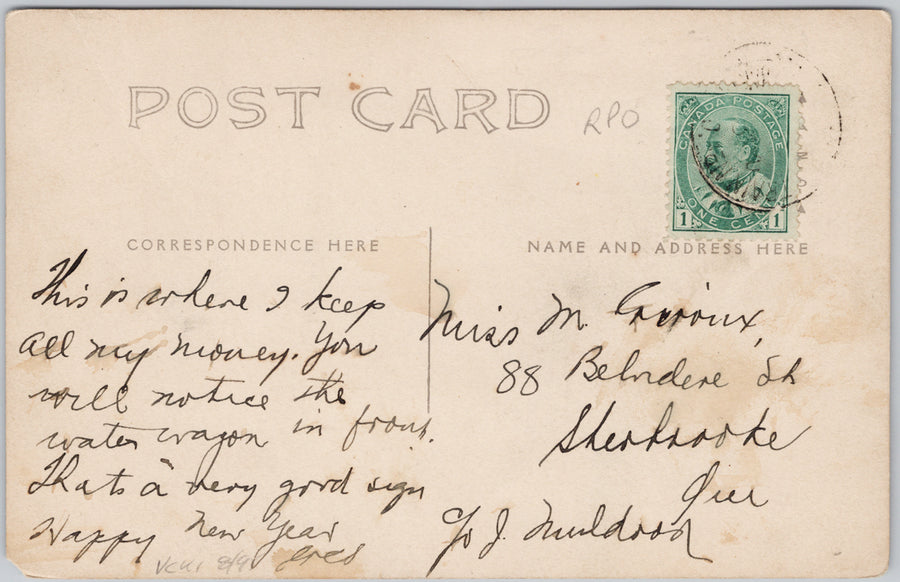 POST CARD
RPO
CANADA POSTAGE
1 ONE CENT 1
CORRESPONDENCE HERE
This is where I keep
all my money. You
will notice the
water wagon in front.
Thats a very good sign
Happy New Year
Fred
NAME AND ADDRESS HERE
Miss M.
88 Belvidere St
Sherbrooke
Que
c/o J. Muldoon